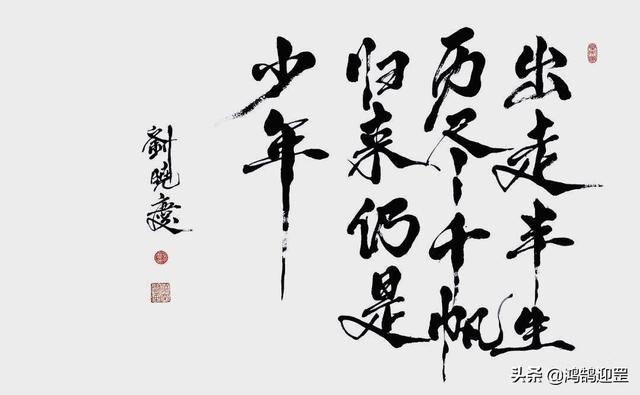 出走半生
历尽千帆
归来仍是
少年
劉晓慶
头条 @鸿鹄迎罡